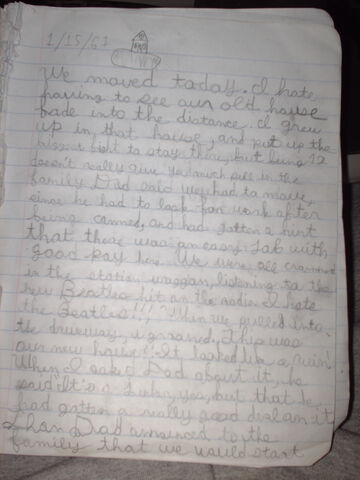 1/15/67
We moved today. I hate
having to see our old house
fade into the distance. I grew
up in that house, and put up the
biggest fight to stay there, but being 12
doesn't really give you much pull in the
family. Dad said we had to move,
since he had to look for work after
being canned, and had gotten a hint
that there was an easy job with
good pay here. We were all crammed
in the station waggon, listening to the
new Beatles hit on the radio. I hate
the Beatles!!! When we pulled into
the driveway, I groaned, This was
our new house?! It looked like a ruin!
When I asked Dad about it, he
said It's a, yes, but that he
had gotten a really good deal on it.
Than Dad announced to the
family that we would start